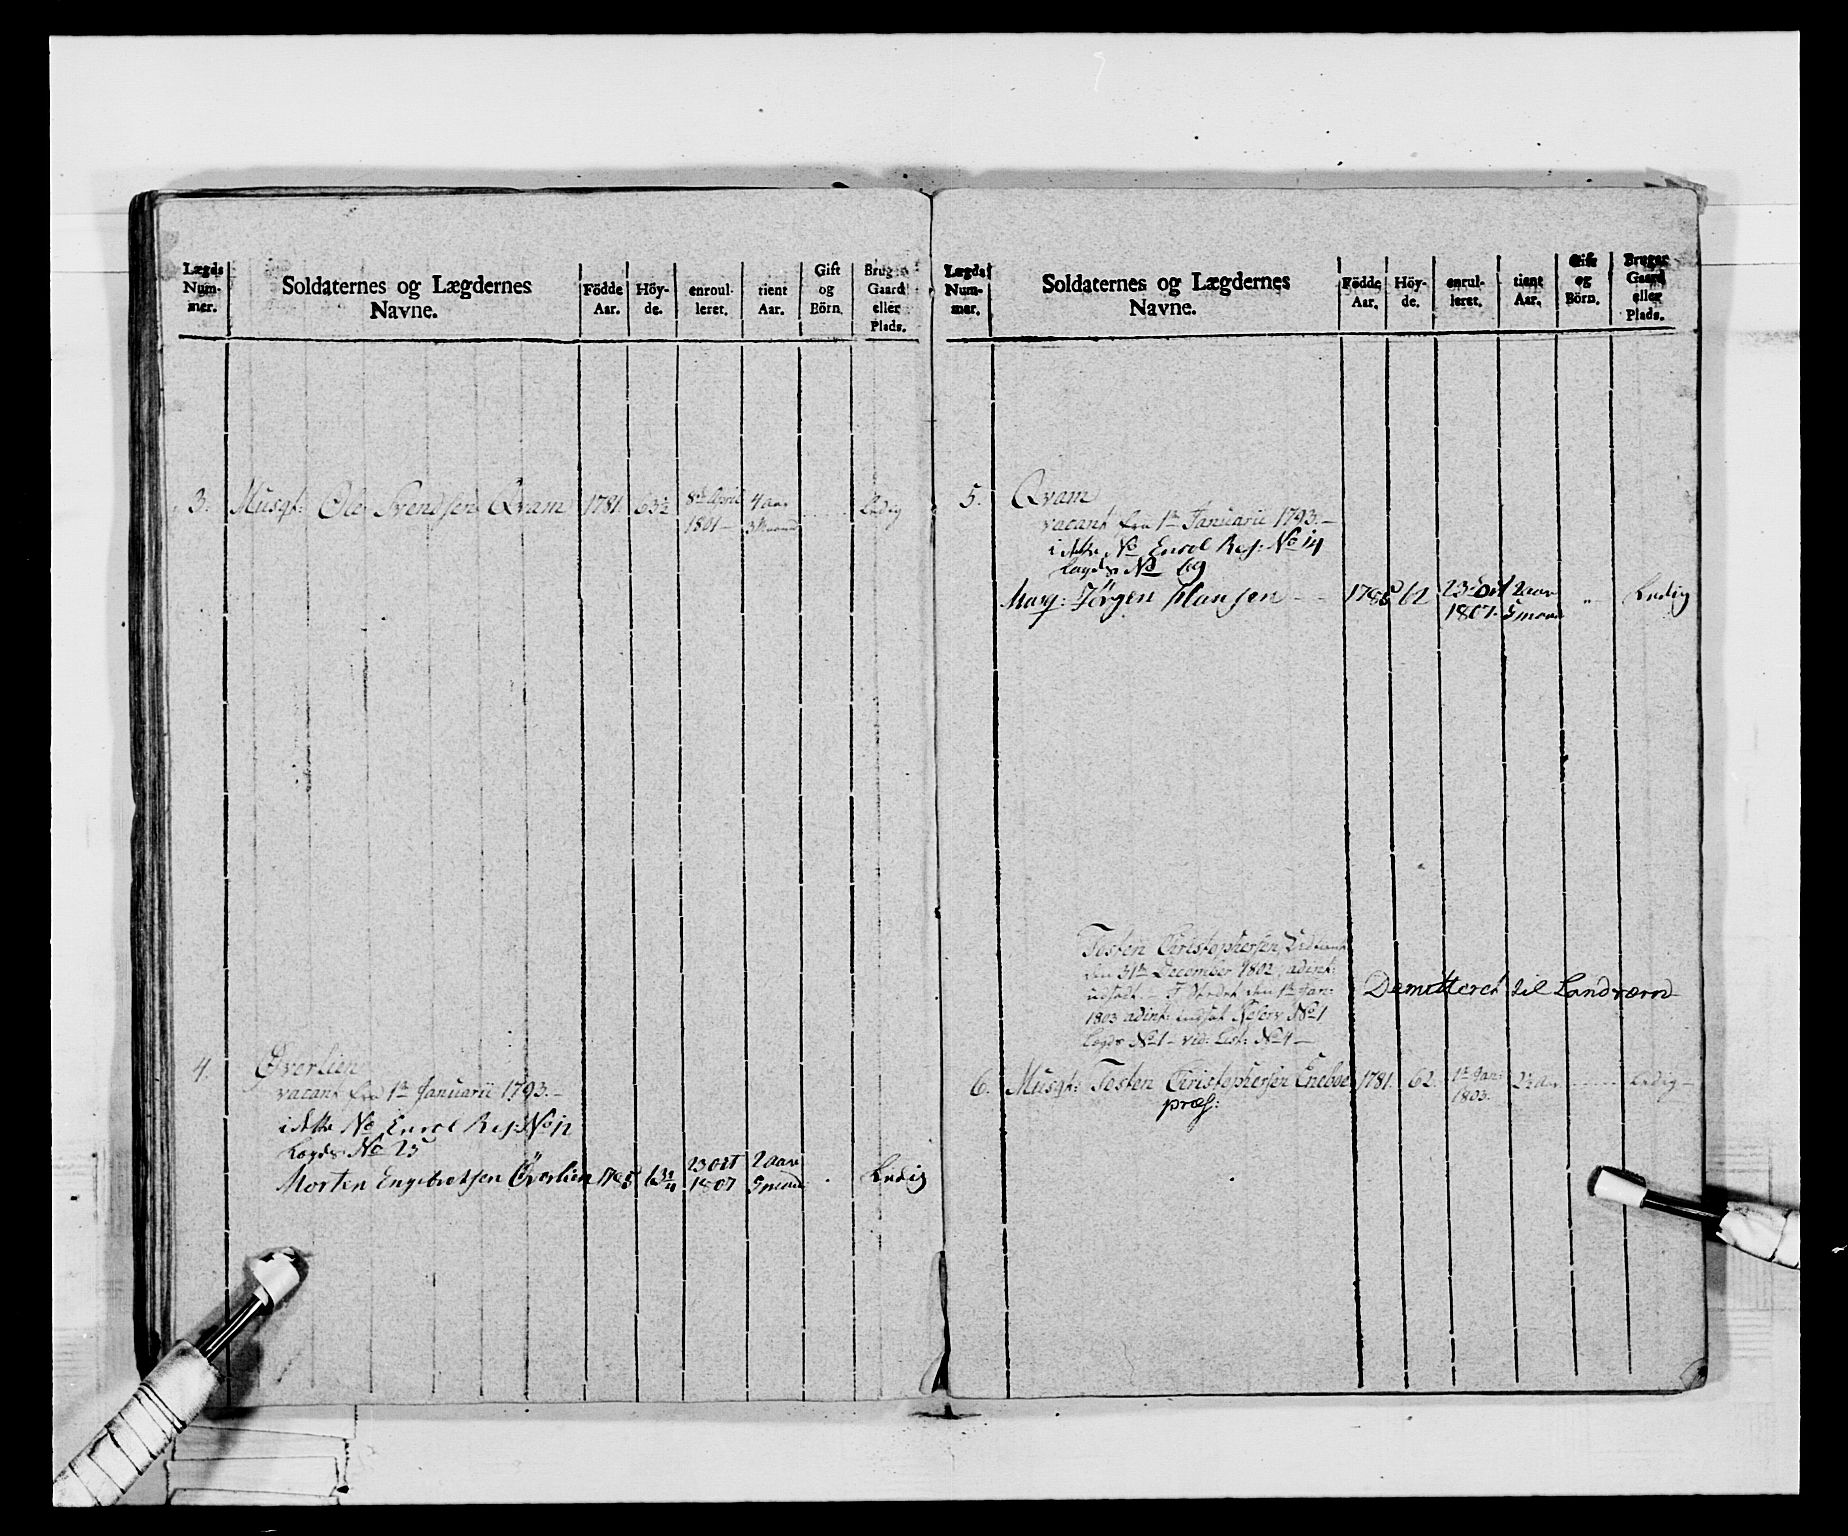 Lægds Num- mer.
Soldaternes og Lægdernes Navne.
Födde Aar.
Höy- de.
enroul- leret.
tient Aar.
Gift og Börn.
Bruger Gaard eller Plads.
3. Musqt: Ole Svendsen Qvam 1781. 63½ 8de April 4 aar Ledig
1801 — 3 Maaned
4. Øverlien
vacant fra 1te Januarii 1793. —
No Enrol Rej: No 12
Lægds No 25
Morten Engebretsen Överlien 1785 63¼ 23 Oct 1807 2 aar 5 maan Ledig
Lægds Num- mer.
Soldaternes og Lægdernes Navne.
Födde Aar.
Höy- de.
enrul- leret.
tient Aar.
Gift og Börn.
Bruger Gaard eller Plads.
5. Qvam
vacant fra 1te Januarii 1793. —
No Enrol Rej: No 14
Lægds No 69
Musq: Jörgen Hansen — 62 23 Oct 2 aar Ledig
1807. 5 maan
Tosten Christophersen,
den 31te December 1802, adint:
udsadt. — den 1te Jan:
1803 adint: Reserv No 1
Lægds No 1 — vid: List: No 4 —
Demitteret til Landværn
6. Musqt: Tosten Christophersen Eneboe 1781. 62. 1te Jan: Ledig —
1803.
præs: